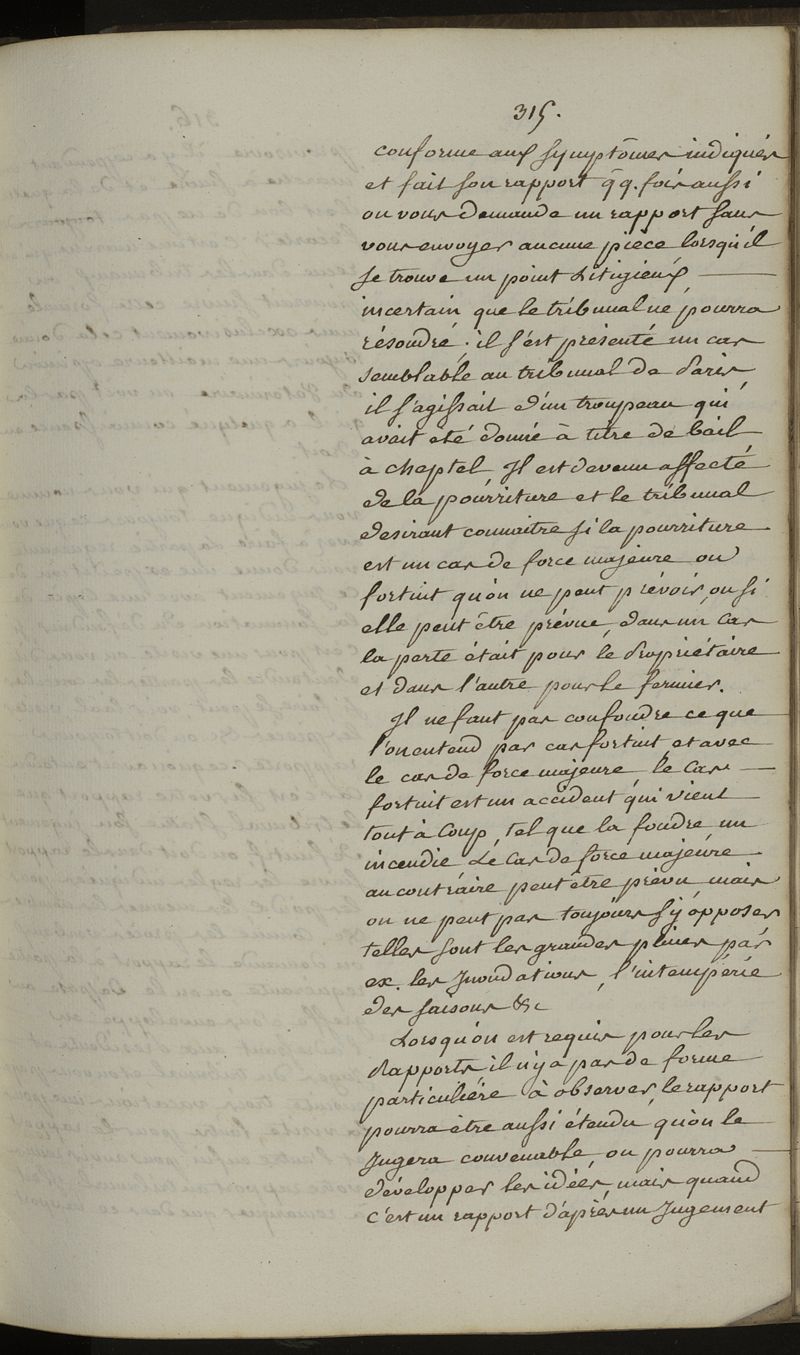 315.
conforme aux symptômes indiqués
et fait son rapport q̃q. fois aussi
on vous demande un rapport sans
vous envoyer aucune piece lorsqu'il
se trouve un point Litigieux
incertain que le tribunal ne pourra
résoudre. il s'est présenté un cas
semblable au tribunal de Paris,
il s'agissait d'un troupeau qui
avait été donné à titre de bail
à cheptel Il est devenu affecté
de la pourriture et le tribunal
desirant connaitre si la pourriture
est un cas de force majeure ou
fortuit qu'on ne peut prévoir, ou si
elle peut être prévue, dans un cas
la perte était pour le Propriétaire
et dans l'autre pour le fermier.
Il ne faut pas confondre ce que
l'on entend par cas fortuit et avec
le cas de force majeure, le Cas
fortuit est un accident qui vient
tout à Coup, tel que la foudre, un
incendie Le Cas de force majeure
au contraire peut être prévu mais
on ne peut pas toujours s'y opposer
telles sont les grandes pluies par
ex. les Inondations, l'intempérie
des saisons &c
Lorsqu'on est requis pour les
Rapports il n'y a pas de forme
particulière à observer, le rapport
pourra être aussi étendu qu'on le
Jugera convenable, on pourra
développer les idées, mais quand
c'est un rapport d'après un Jugement